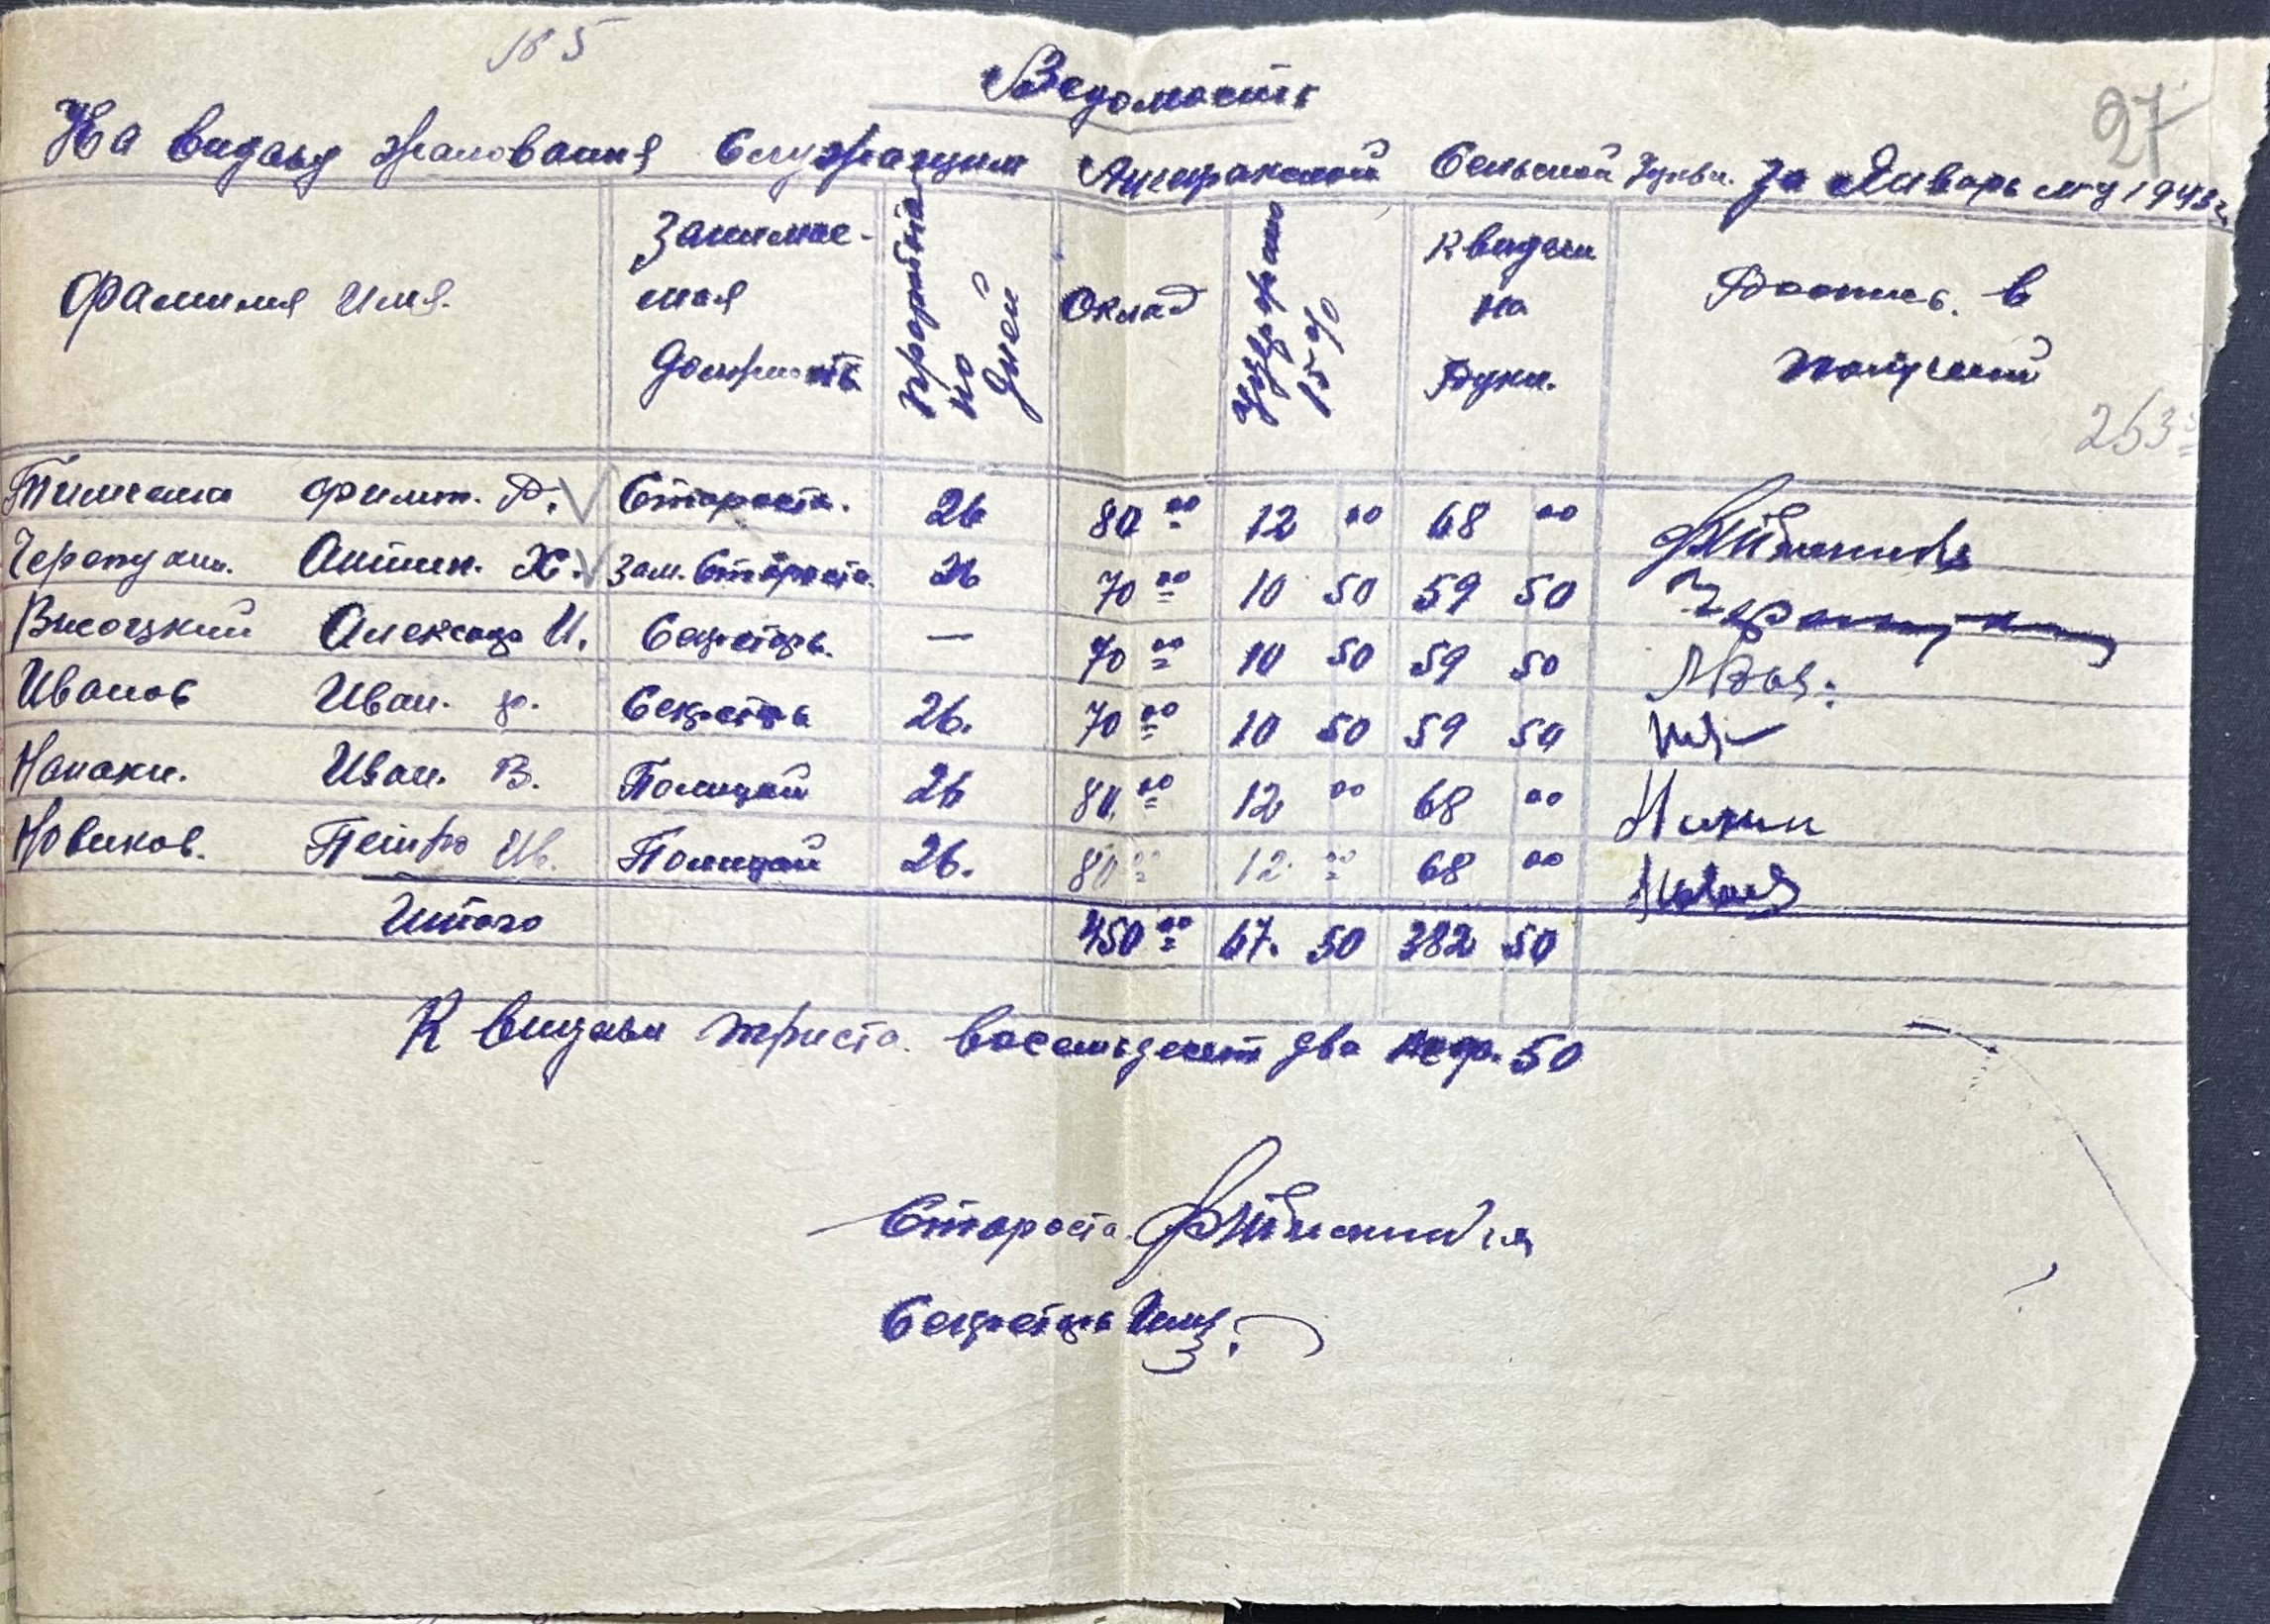 № 5
Ведомость
27
На видачу жалования Служащим Сельской за Январь м-ц 1943 г.
Фамилия Имя.
Занимае-
мая
должность
дней
Оклад
15%
К видачи
на
руки.
Роспись. в
получений
263
Филит. Р. Староста. 26 80 00 12 00 68 00
Х. Зам. Староста. 26 70 00 10 50 59 50
Висоцкий Александр И. Секретарь. — 70 00 10 50 59 50
Иванов Иван. ф. Секретарь 26. 70 00 10 50 59 50
Иван. В. Полицай 26 80 00 12 00 68 00
Новиков. Петро Ив. Полицай 26. 80 00 12 00 68 00
Итого 450 00 67. 50 382 50
К видачи триста восемьдесят два 50
Староста
Секретарь